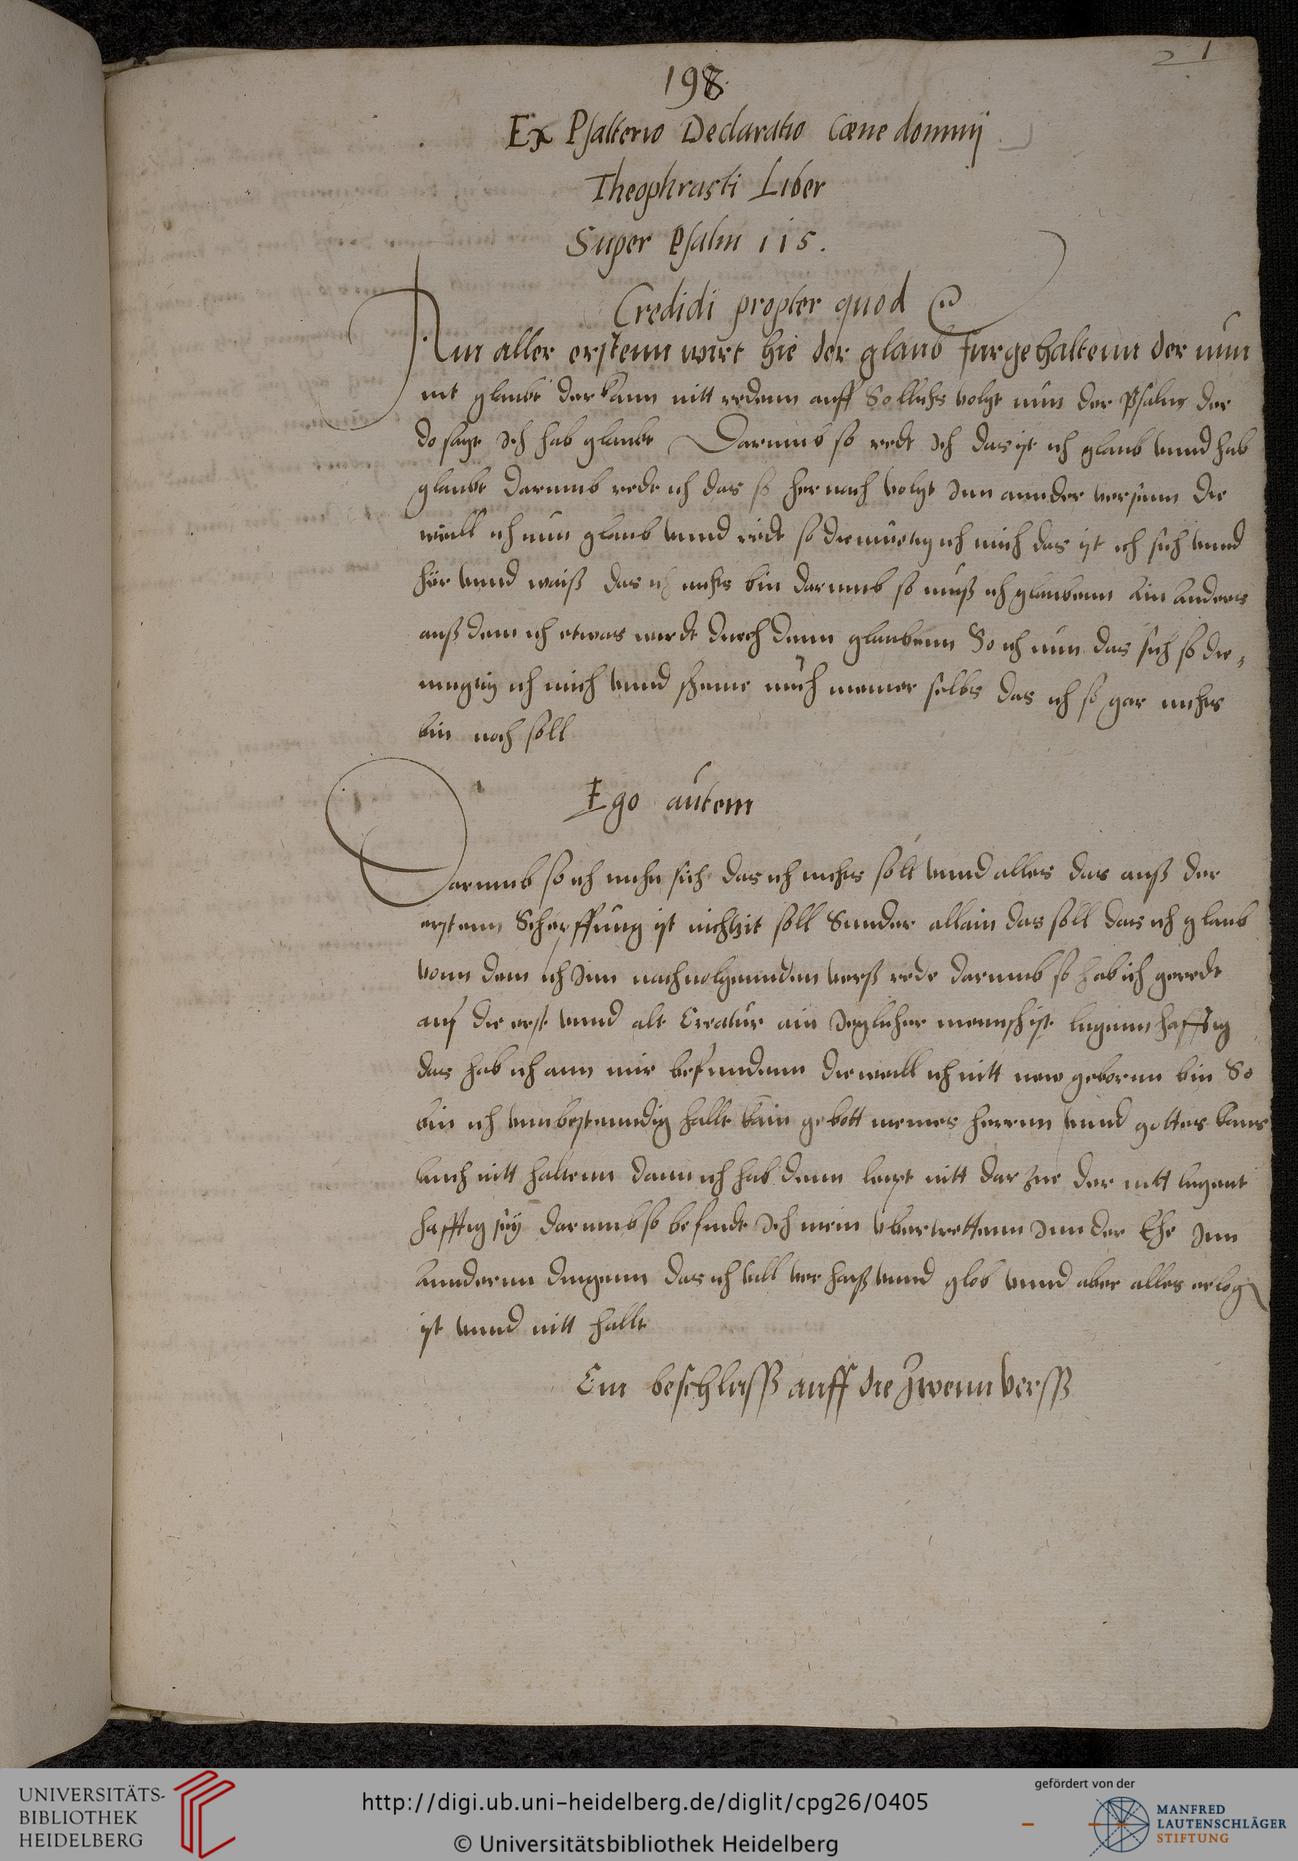 21
198.
Ex Psalterio Declaratio Cœne dominij
Theophrasti Liber
Super Psalm 115.
Credidi propter quod
Am aller erstenn wirt hie der glaub furgehaltenn der nun
nit glaubt der kann nitt redenn auff Sollichs volgt nun der Psalm der
do sagt Ich hab glaubt Darumb so redt Ich das ist ich glaub vnnd hab
glaubt darumb rede ich das so hernach volgt Inn annder versenn Die
weill ich nun glaub vnnd redt so diemuetig ich mich das ist ich sich vnnd
hör vnnd waiß das ich nichts bin darumb so muß ich glaubenn ain anders
auß dem ich etwas werdt durch denn glaubenn So ich nun das sich so die-
muetig ich mich vnnd scheme mich meiner selbs das ich so gar nichts
bin noch soll
Ego autem
Darumb so ich mich sich das ich nichts soll vnnd alles das auß der
erstenn Scherffung ist nichtzit soll Sunder allain das soll das ich glaub
vonn dem ich Inn nachuolgennden verß rede darumb so hab ich geredt
auf die erst vnnd alt Creatur ain Jeglicher mennsch ist lugennhafftig
das hab ich ann mir befundenn dieweill ich nitt new geborenn bin So
bin ich vnnbestenndig hallt kain gebott meines herrnn vnnd gottes kans
auch nitt haltenn dann ich hab denn leyt nitt dar zue der nitt lugent
hafftig sey darumb so befinde Ich mein vbertrettenn Inn der Ehe Inn
anndernn dingenn das ich vill verhaiß vnnd glob vnnd aber alles erlog
ist vnnd nitt hallt
Ein beschluss auff die Zwenn verss
UNIVERSITÄTS-
BIBLIOTHEK
HEIDELBERG
http://digi.ub.uni-heidelberg.de/diglit/cpg26/0405
© Universitätsbibliothek Heidelberg
gefördert von der
MANFRED
LAUTENSCHLÄGER
STIFTUNG